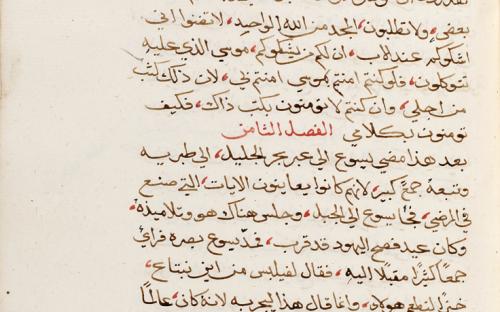 بعض، ولا تطلبون، المجد من الله الواحد، لا تظنوا اني
اشكوكم عند الاب، ان لكم من يشكوكم، موسي الذي عليه
تتوكلون، فلو كنتم امنتم بموسي امنتم بي، لان ذلك كتب
من اجلي، وان كنتم لا تومنون بكتب ذاك، فكيف
تومنون بكلامي الفصل الثامن
بعد هذا مضي يسوع الي عبر بحر الجليل، الي طبريه
وتبعه جمع كبير، لانهم كانوا يعاينون الايات، التي صنع
في المرضي، فجا يسوع الي الجبل، وجلس هناك هو وتلاميذه،
وكان عيد فصح اليهود قد قرب، فمد يسوع بصره فراي
جمعا كثيرا مقبلا اليه، فقال لفيلبس من اين نبتاع،
خبزا لنطعم هولاء، وانما قال هذا ليجربه لانه كان، عالما